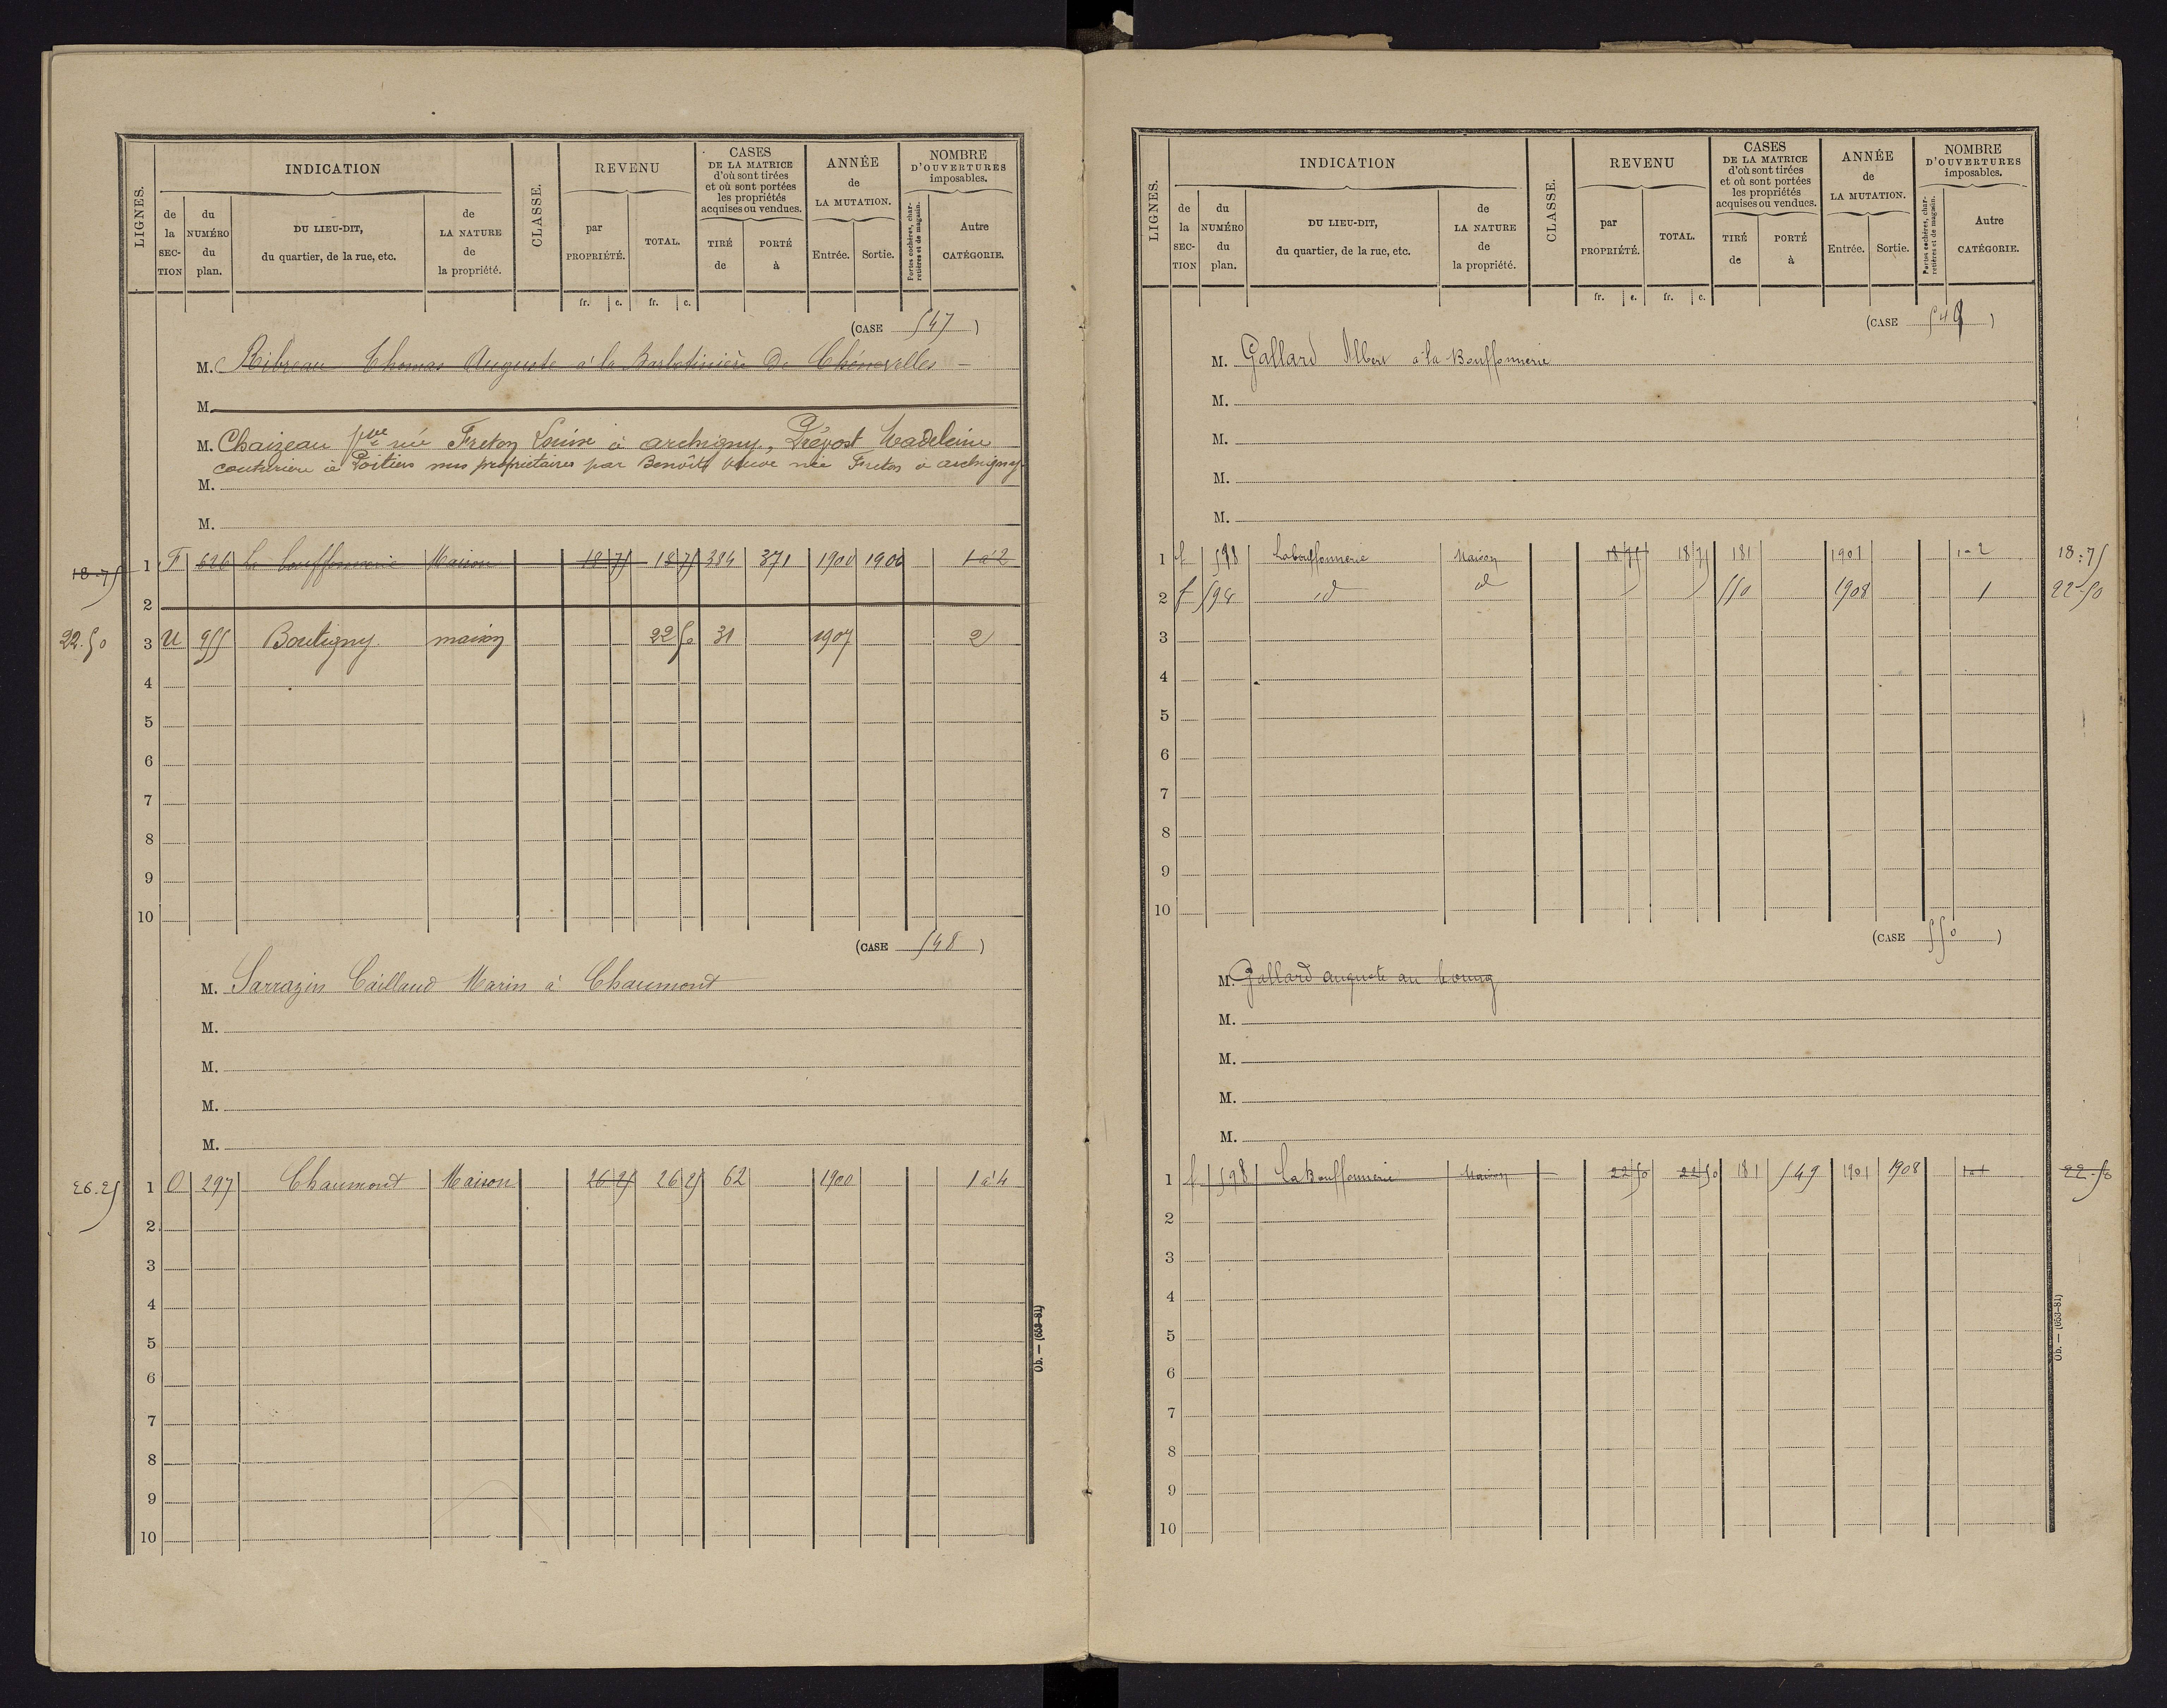 LIGNES. INDICATION CLASSE. REVENU CASES DE LA MATRICE d'où sont tirées et où sont portées les propriétés acquises ou vendues. ANNÉE de LA MUTATION. NOMBRE D'OUVERTURES imposables.
de la SECTION du NUMÉRO du plan. DU LIEU-DIT, du quartier, de la rue, etc. de LA NATURE de la propriété. par PROPRIÉTÉ. TOTAL. TIRÉ de PORTÉ à Entrée. Sortie. Portes cochères, charretières et de magasin. Autre CATÉGORIE.
fr. c. fr. c.
(CASE 547)
M. Ribreau Thomas Auguste à la Barbotinière de Chénevelles
M.
M. Chaizeau née Freton Louise à archigny, Prévost Madeleine
couturière à Poitiers nus propriétaires par Benoît veuve née Freton à archigny
M.
M.
18-75 1 F 626 La bouffonnerie Maison 18 75 18 75 384 371 1900 1900 1 à 2
2
22.50 3 U 955 Boutigny maison 22 50 31 1907 2
4
5
6
7
8
9
10
(CASE 548)
M. Sarrazin Caillaud Marin à Chaumont
M.
M.
M.
M.
26.25 1 O 297 Chaumont Maison 26 25 26 25 62 1900 1 à 4
2
3
4
5
6
7
8
9
10
Ob. — (653-81)
LIGNES. INDICATION CLASSE. REVENU CASES DE LA MATRICE d'où sont tirées et où sont portées les propriétés acquises ou vendues. ANNÉE de LA MUTATION. NOMBRE D'OUVERTURES imposables.
de la SECTION du NUMÉRO du plan. DU LIEU-DIT, du quartier, de la rue, etc. de LA NATURE de la propriété. par PROPRIÉTÉ. TOTAL. TIRÉ de PORTÉ à Entrée. Sortie. Portes cochères, charretières et de magasin. Autre CATÉGORIE.
fr. c. fr. c.
(CASE 549)
M. Gallard Albert à la Bouffonnerie
M.
M.
M.
M.
1 f 598 La bouffonnerie Maison 18 75 18 75 181 1901 1-2 18-75
2 f 598 id id 550 1908 1 22-50
3
4
5
6
7
8
9
10
(CASE 550)
M. Gallard auguste au bourg
M.
M.
M.
M.
1 f 598 La Bouffonnerie Maison 22 50 22 50 181 549 1901 1908 1 à 1 22-50
2
3
4
5
6
7
8
9
10
Ob. — (653-81)